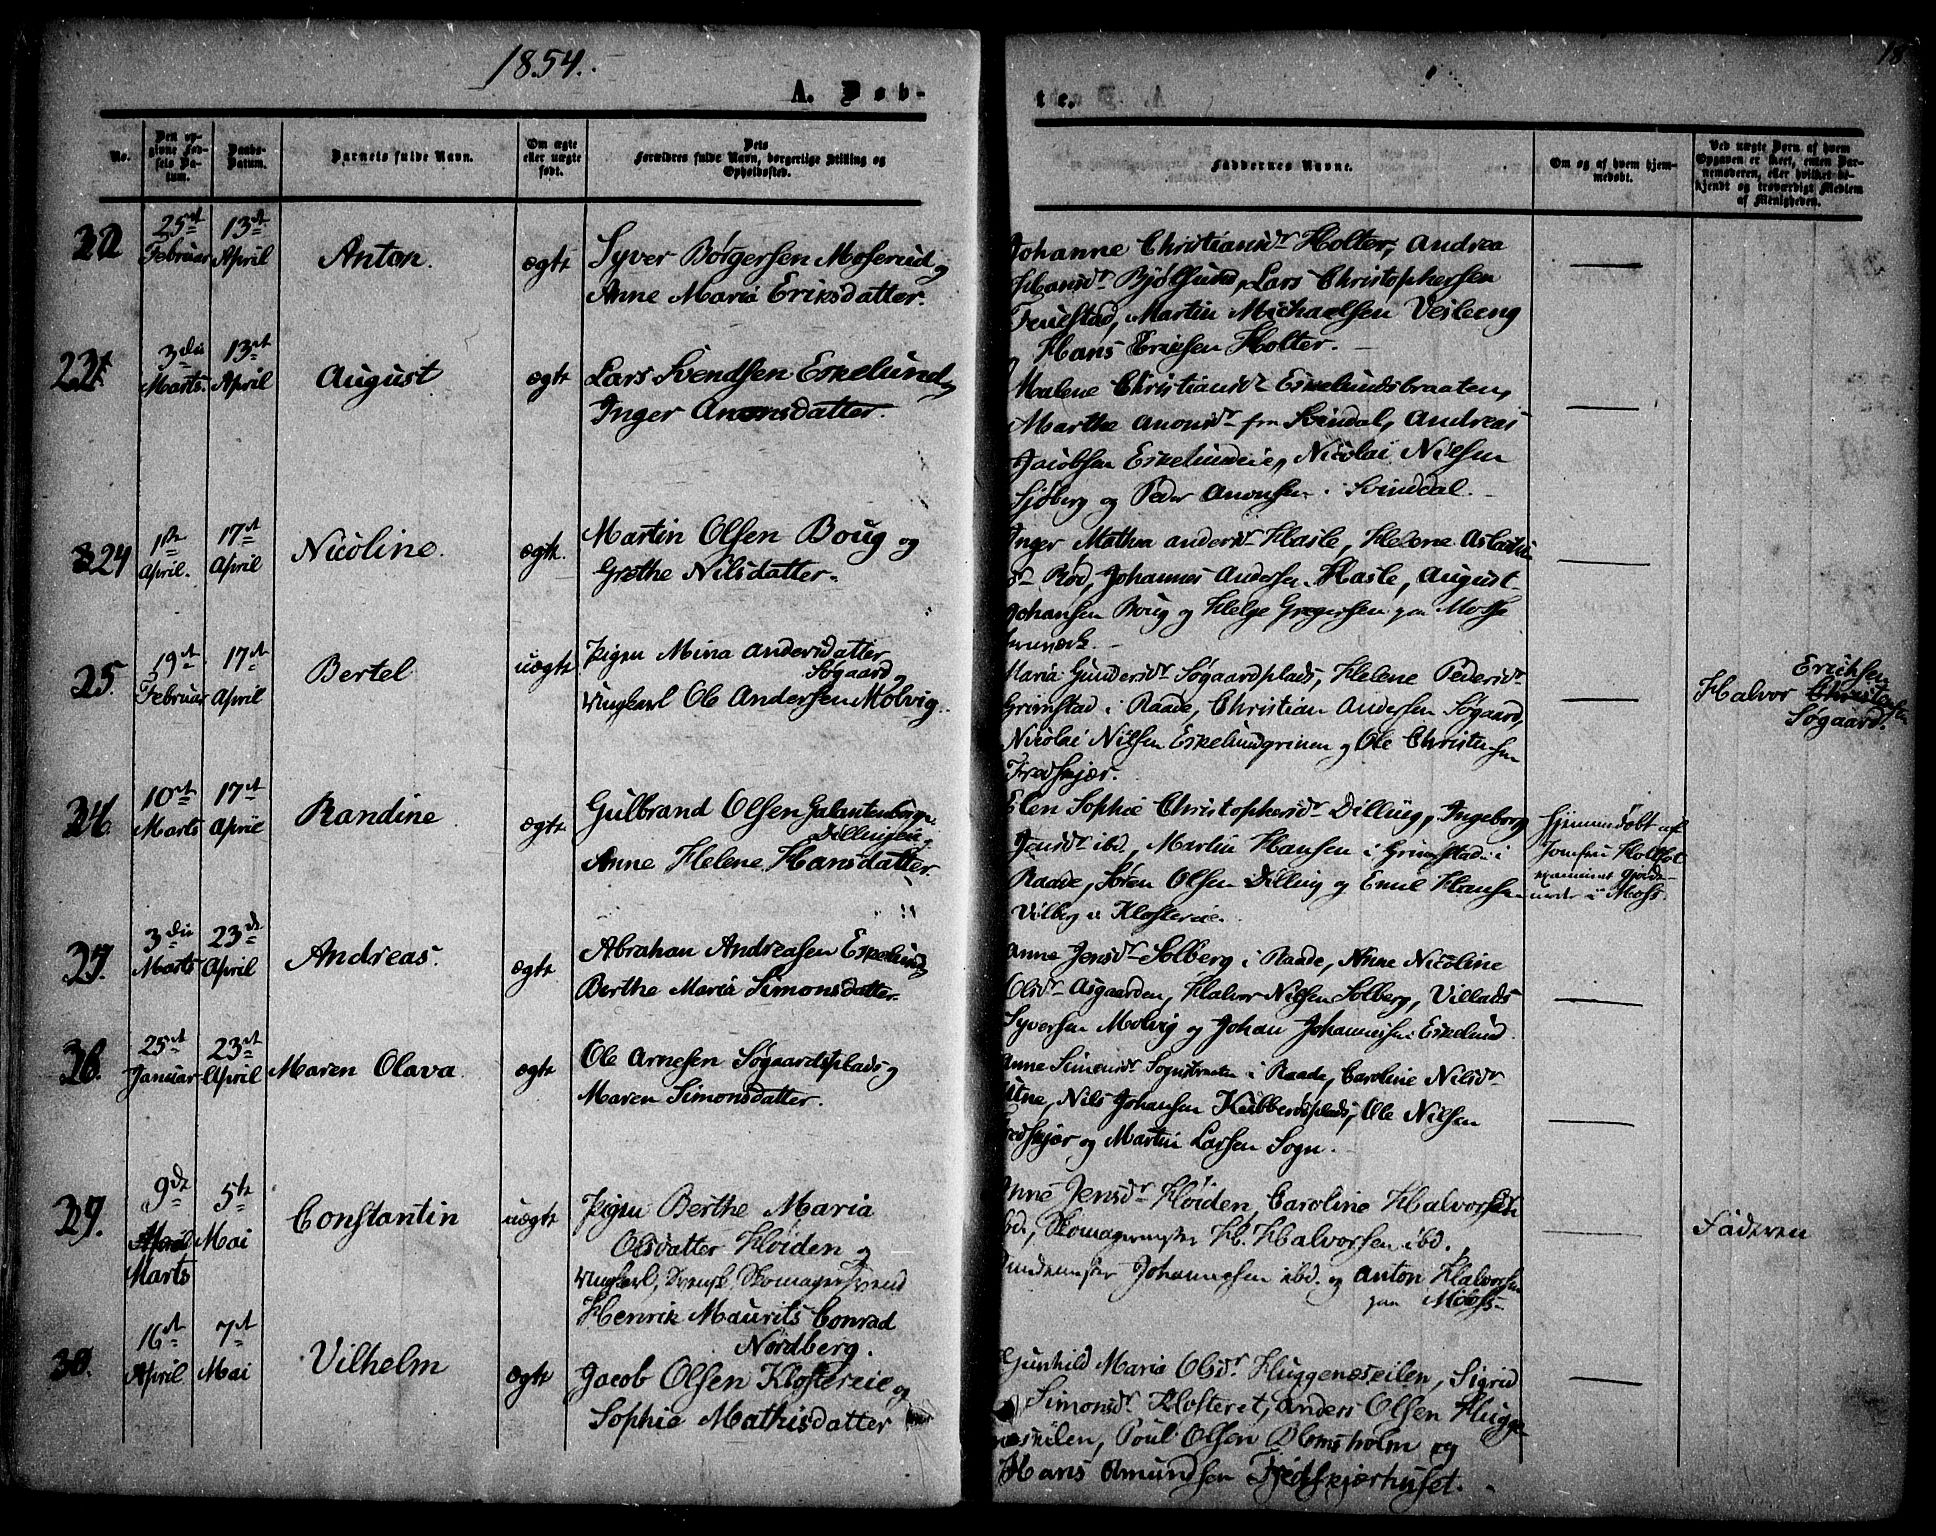 1854.
18
A. Døb-
te.
No.
Den op-
givne Fød-
sels Da-
tum.
Daabs-
Datum.
Barnets fulde Navn.
Om ægte
eller uægte
født.
Dets
Forældres fulde Navn, borgerlige Stilling og
Opholdssted.
Faddernes Navne.
Om og af hvem hjem-
medøbt.
Ved uægte Børn, af hvem
Opgaven er skeet, enten Bar-
nemoderen, eller hvilket be-
kjendt og troværdigt Medlem
af Menigheden.
25de Februar 13de April Anton. ægte
Syver Børgersen Moserud og
Anne Maria Eriksdatter.
Johanne Christiansdr Holter, Andrea
Hansdr Bjølsund, Lars Christophersen
Martin Michaelsen Veileeng
Hans Ericksen Holter.
23 3die Marts. 13de April August ægte
Lars Svendsen Eskelund og
Inger Anonsdatter.
Malene Christiansdr Eskelundsbraaten,
Marthe Anonsdr fra Svindal, Andreas
Jacobsen Eskelundeie, Nicolai Nilsen
Sjøberg og Peder Anonsen i Svindal.
24 1ste April. 17de April Nicoline. ægte.
Martin Olsen Boug og
Grethe Nilsdatter.
Inger Mathea Andersdr Hasle, Helene
dr Rød, Johannes Andersen Hasle, August
Johansen Boug og Helge Gregersen paa Mosse
Jernværk.
25. 19de Februar 17de April Bertel uægte
Pigen Mina Andersdatter
Søgaard og
Ungkarl Ole Andersen Molvig.
Maria Gundersdr Søgaardplads, Helene Pedersdr
Grimstad i Raade, Christian Andersen Søgaard,
Nicolai Nilsen Eskelundgrinen og Ole Christensen
Fredskjær.
Halvor Ericksen
Søgaard.
26. 10de Marts 17de April Randine ægte
Gulbrand Olsen Galantenborg
Dillingen,
Anne Helene Hansdatter.
Elen Sophie Christophersdr Dilling, Ingeborg
Jensdr ibd., Martin Hansen i Grimstad i
Raade, Søren Olsen Dilling og Emil Hansen
Vilberg i Klostereie.
Hjemmedøbt af
Jomfru Holfot
examineret Gjorde-
moder i Moss.
27. 3die Marts 23de April Andreas. ægte
Abraham Andreasen Eskelund og
Berthe Maria Simonsdatter.
Anne Jensdr Solberg i Raade, Anne Nicoline
Olsdr Asgaarden, Halvor Nilsen Solberg, Villads
Syversen Molvig og Johan Johannesen Eskelund.
28. 25de Januar 23de April Maren Olava ægte
Ole Arnesen Søgaardsplads og
Maren Simonsdatter.
Anne Simensdr Sognstranten i Raade, Caroline Nilsdr
Nils Johansen Kubberødplads, Ole Nilsen
Fredskjær og Martin Larsen Sogn.
29. 9de Marts 5te Mai Constantin uægte
Pigen Berthe Maria
Olsdatter Høiden og
Ungkarl, Svensk, Skomagersvend
Henrik Maurits Conrad
Nordberg.
Anne Jensdr Høiden, Caroline Halvorsdr
ibd, Skomagermester H. Halvorsen ibd.,
Johannesen ibd. og Anton Halvorsen
paa Moss
Faderen
30. 16de April 7de Mai Vilhelm ægte
Jacob Olsen Klostereie og
Sophia Mathisdatter
Gunhild Maria Olsdr Huggenæseilen, Sigrid
Simonsdr Klosteret, Anders Olsen Hugge-
næseilen, Poul Olsen Blomsholm og
Hans Amundsen Fredskjærhuset.